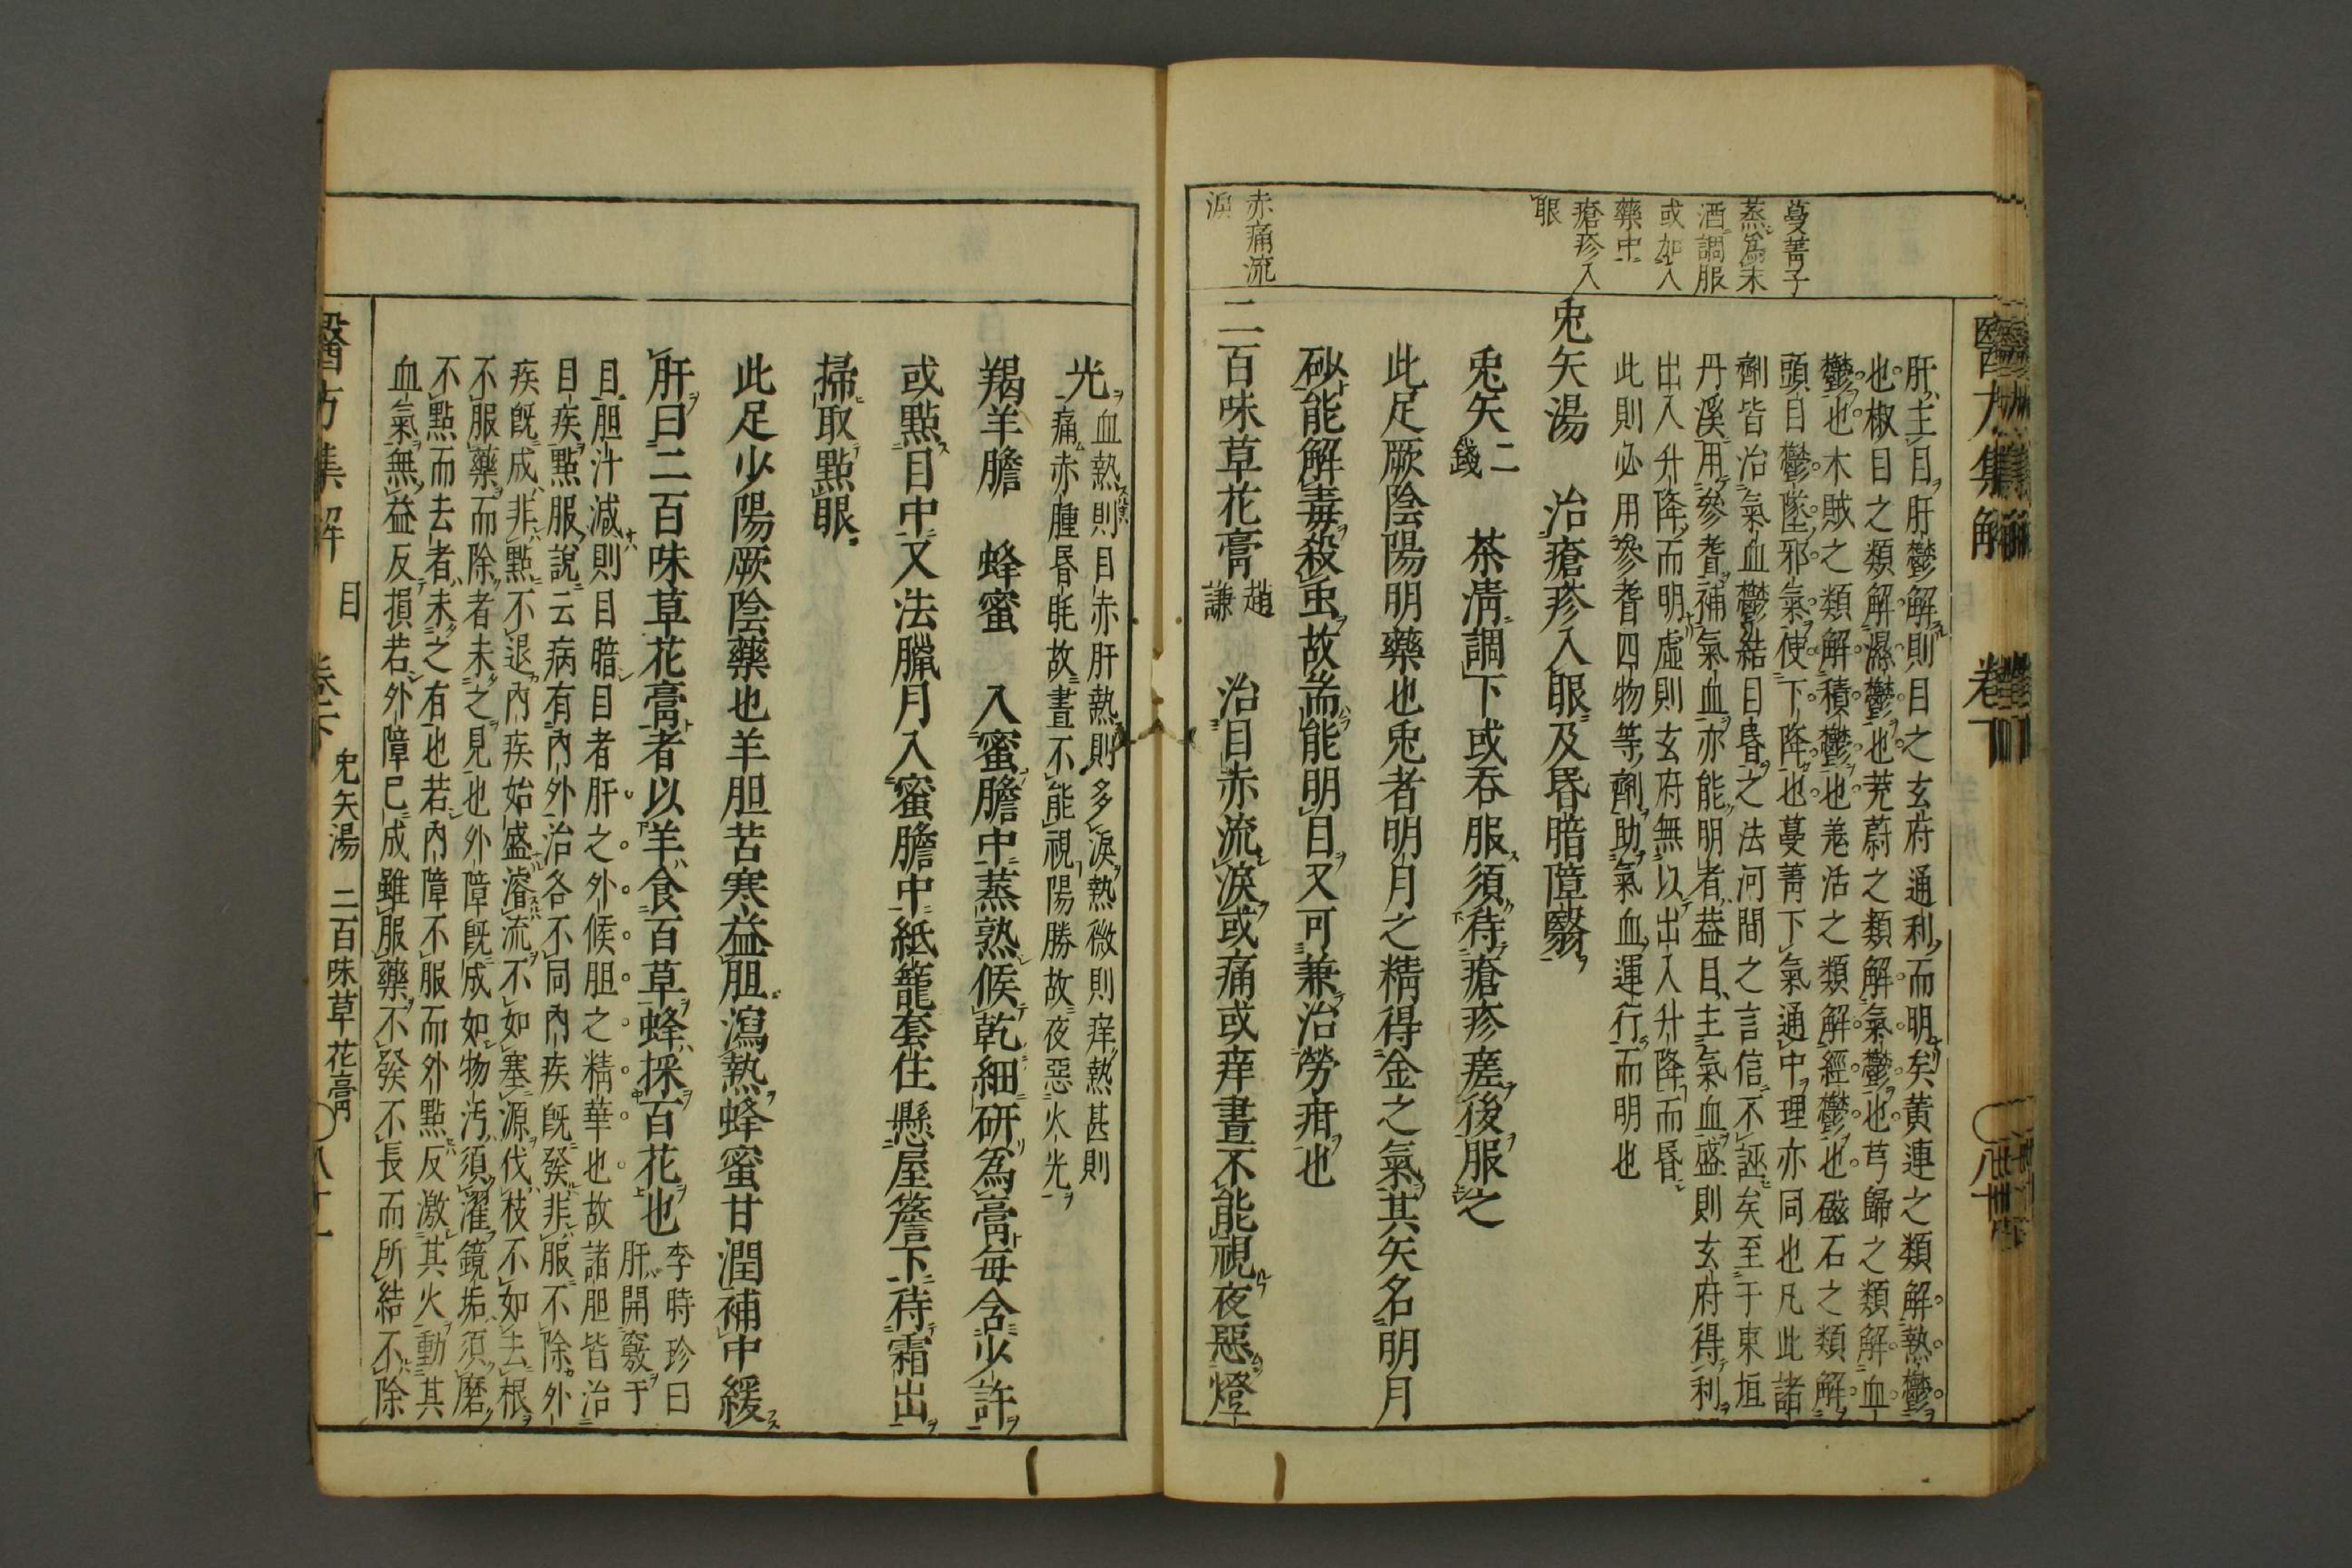 蔓菁子
蒸爲末
酒調服
或加入
藥中
瘡疹入
眼
赤痛流
淚
肝主目肝鬱解則目之玄府通利而明矣黃連之類解熱鬱
也椒目之類解濕鬱也茺蔚之類解氣鬱也芎歸之類解血
鬱也木賊之類解積鬱也羌活之類解經鬱也磁石之類解
頭目鬱墜邪氣使下降也蔓菁下氣通中理亦同也凡此諸
劑皆治氣血鬱結目昏之法河間之言信不誣矣至于東垣
丹溪用參耆補氣血亦能明者葢目主氣血盛則玄府得利
出入升降而明虛則玄府無以出入升降而昏
此則必用參耆四物等劑助氣血運行而明也
兎矢湯　治瘡疹入眼及昏暗障翳
兎矢二錢　茶淸調下或吞服須待瘡疹瘥後服之
此足厥陰陽明藥也兎者明月之精得金之氣其矢名明月
砂能解毒殺虫故耑能明目又可兼治勞疳也
二百味草花膏趙謙　治目赤流淚或痛或痒晝不能視夜惡燈
醫方集解　目　卷下　兎矢湯　二百味草花膏　〇八十一
光血熱則目赤肝熱則多淚熱微則痒熱甚則
痛赤腫昏眊故晝不能視陽勝故夜惡火光
羯羊膽　蜂蜜　入蜜膽中蒸熟候乾細研爲膏每含少許
或點目中又法臘月入蜜膽中紙籠套住懸屋簷下待霜出
掃取點眼
此足少陽厥陰藥也羊胆苦寒益胆瀉熱蜂蜜甘潤補中緩
肝曰二百味草花膏者以羊食百草蜂採百花也李時珍曰
肝開竅于
目胆汁減則目暗目者肝之外候胆之精華也故諸胆皆治
目疾點服說云病有內外治各不同內疾旣發非服不除外
疾旣成非點不退內疾始盛濬流不如塞源伐枝不如去根
不服藥而除者未之見也外障旣成如物汚須濯鏡垢須磨
不點而去者未之有也若內障不服而外點反激其火動其
血氣無益反損若外障已成雖服藥不發不長而所結不除